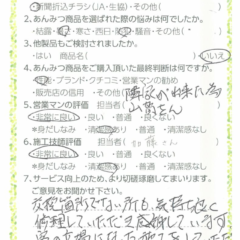 新聞折込チラシ(JA・生協)・その他
2.あんみつ商品を選ばれた際の悩みは何でしたか。
・結露・寒さ・西日・騒音・その他(
3.他製品もご検討されましたか。
・はい(商品名) ・いいえ
4.あんみつ商品をご購入頂いた最終判断は何ですか。
・性能・ブランド・クチコミ・営業マンの勧め
・販売店の信用・その他(
5.営業マンの評価 担当者(
・非常に良い ・良い ・普通 ・良くない
*身だしなみ ・清潔感あり ・普通 ・清潔感なし
6.施工技師評価 担当者(加藤さん
・非常に良い ・良い ・普通 ・良くない
*身だしなみ ・清潔感あり ・普通 ・清潔感なし
7.サービス向上のため、より切磋琢磨してまいります。
ご意見をお聞かせ下さい。
気持ち良く
修理していただき感謝しています。